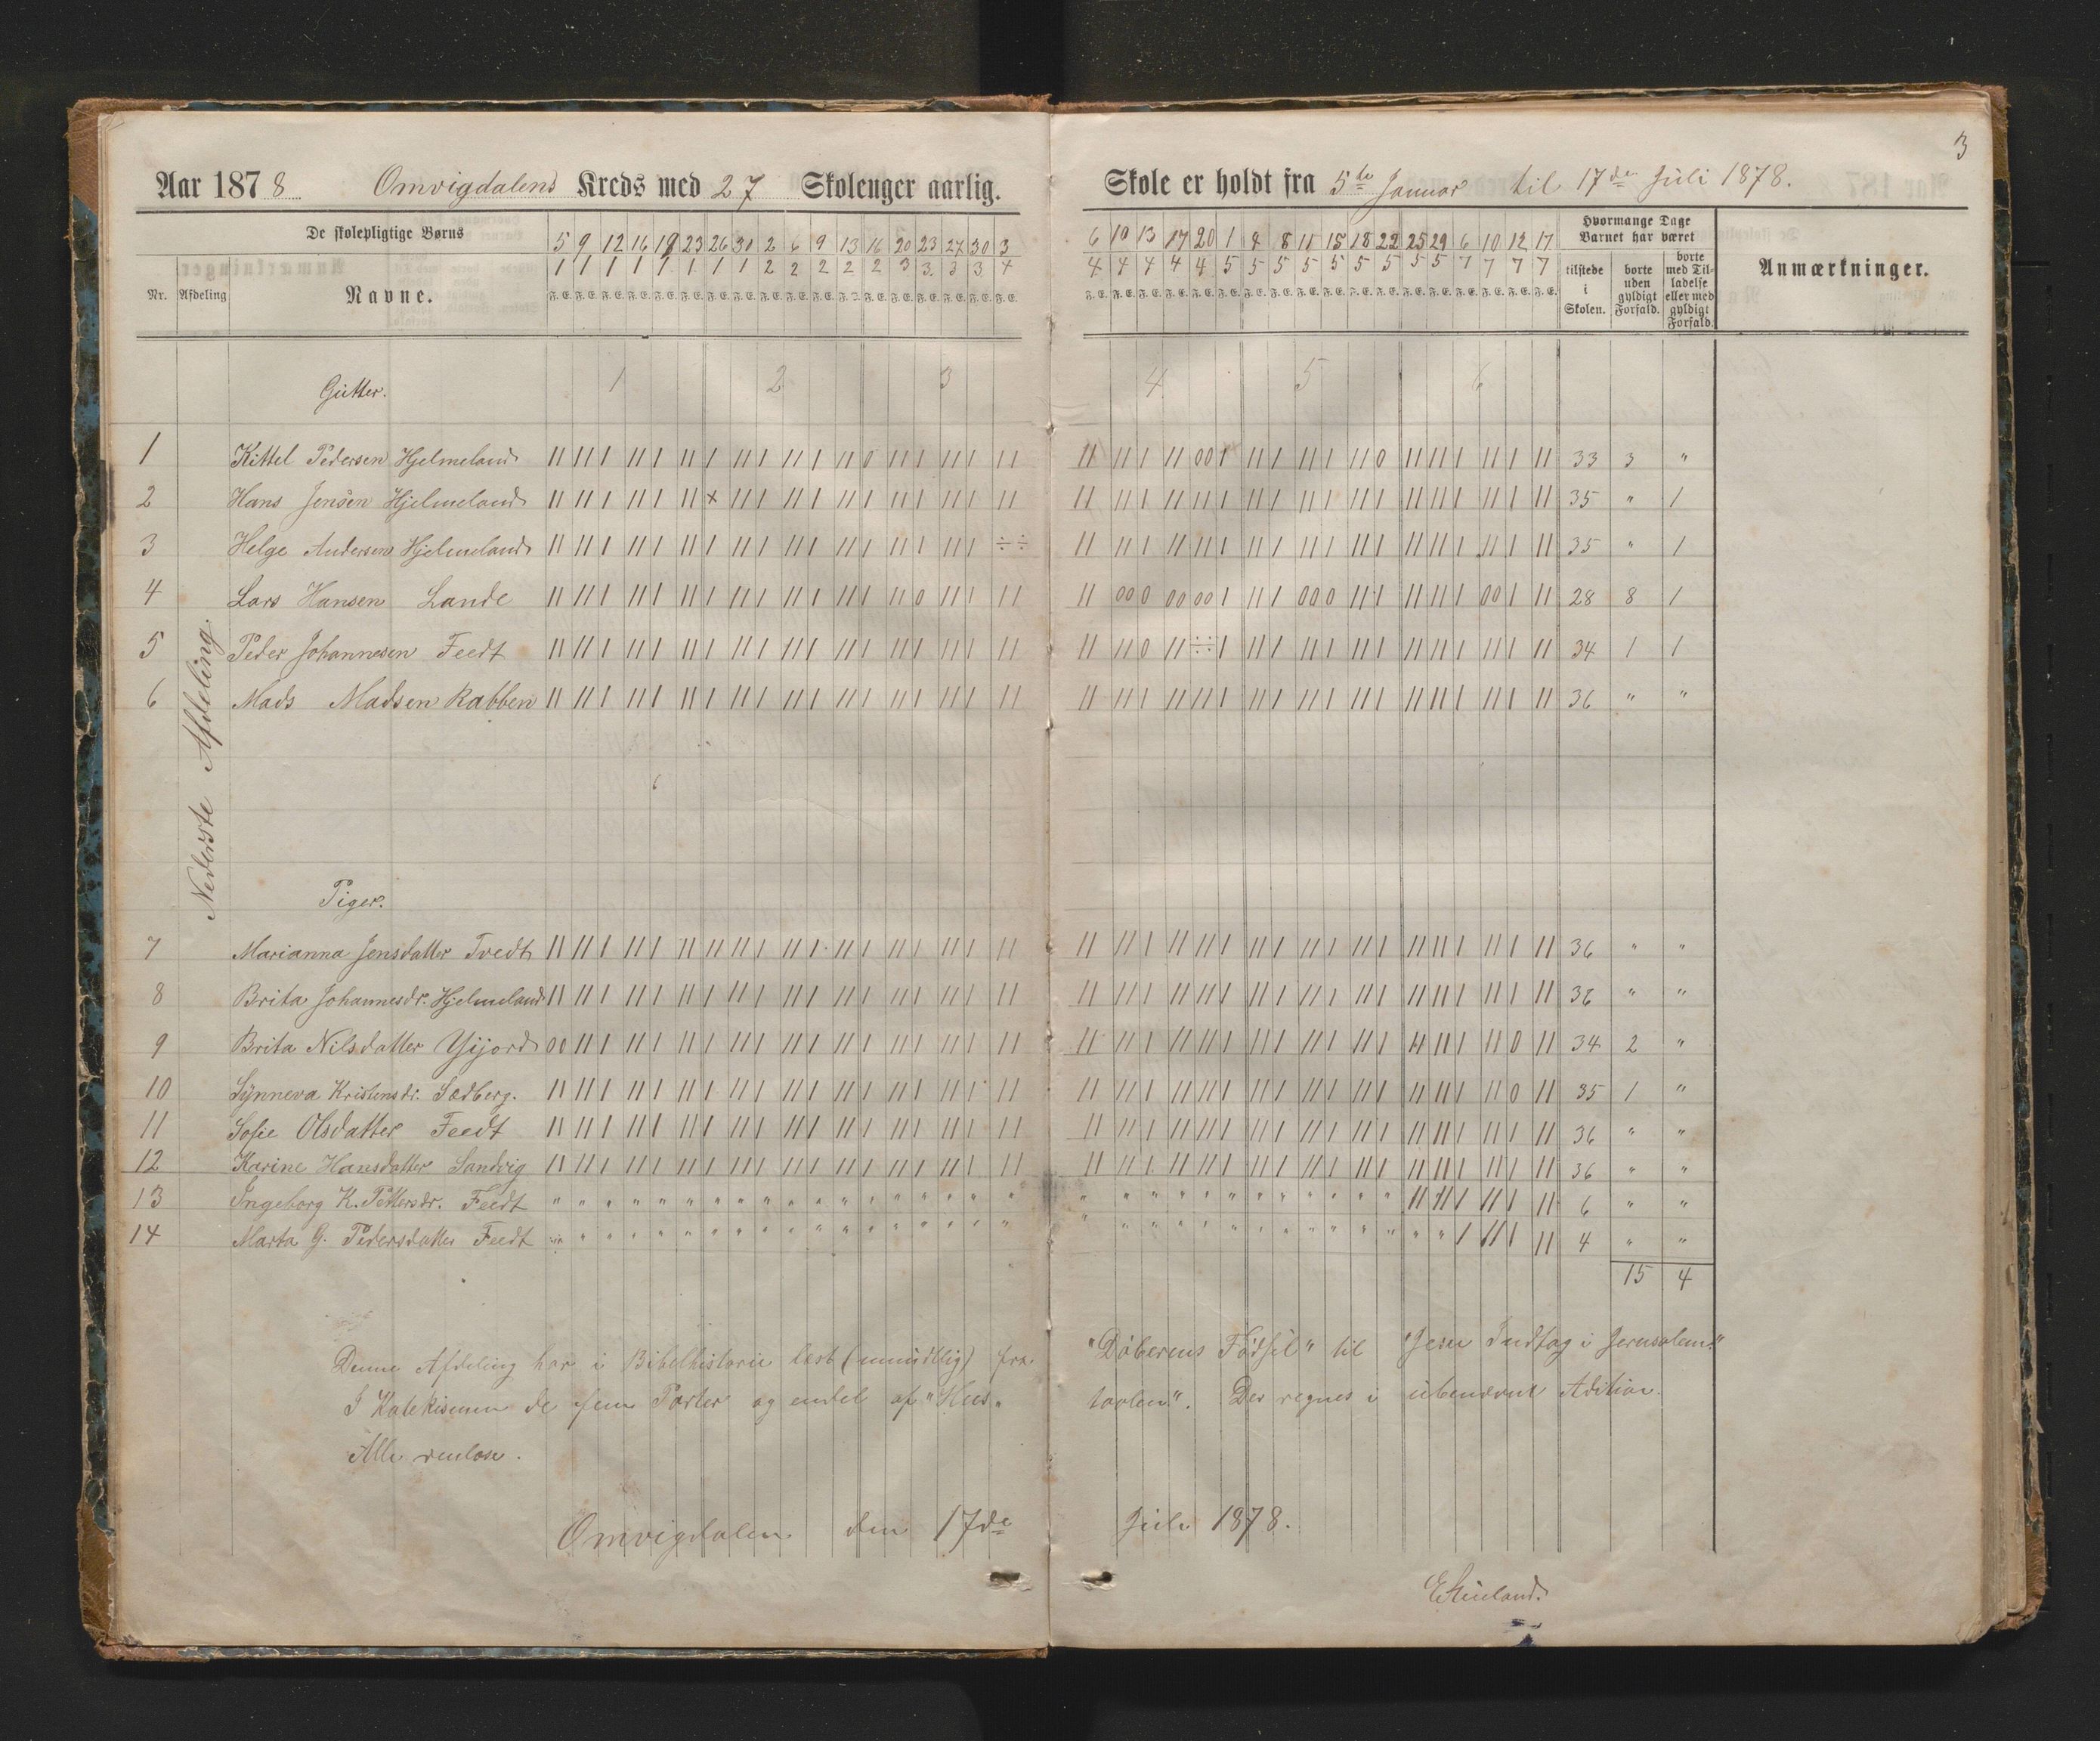 3
Aar 1878 Omvigdalens Kreds med 27 Skoleuger aarlig. Skole er holdt fra 5te Januar til 17de Juli 1878.
De skolepligtige Børns
Nr. Afdeling Navne.
5 9 12 16 19 23 26 30 2 6 9 13 16 20 23 27 30 3
1 1 1 1 1 1 1 1 2 2 2 2 2 3 3 3 3 4
6 10 13 17 20 1 4 8 11 15 18 22 25 29 6 10 12 17
4 4 4 4 4 5 5 5 5 5 5 5 5 5 7 7 7 7
F. E. F. E. F. E. F. E. F. E. F. E. F. E. F. E. F. E. F. E. F. E. F. E. F. E. F. E. F. E. F. E. F. E. F. E.
Hvormange Dage Barnet har været
tilstede i Skolen.
borte uden gyldigt Forfald.
borte med Tilladelse eller med gyldigt Forfald.
Anmærkninger.
Gutter. 1 2 3 4 5 6
Nederste Afdeling
1 Kittel Pedersen Hjelmeland 33 3 "
2 Hans Jensen Hjelmeland 35 " 1
3 Helge Andersen Hjelmeland 35 " 1
4 Lars Hansen Lande 28 8 1
5 Peder Johannesen Feedt 34 1 1
6 Mads Madsen Rabben 36 " "
Piger.
7 Marianna Jensdatter Tvedt 36 " "
8 Brita Johannesdr. Hjelmeland 36 " "
9 Brita Nilsdatter 34 2 "
10 Synneva Kristensdr. Sædberg. 35 1 "
11 Sofie Olsdatter Feedt 36 " "
12 Karine Hansdatter Sandvig 36 " "
13 Ingeborg K. Pettersdr. Feedt 6 " "
14 Marta G. Pedersdatter Feedt 4 " "
15 4
Denne Afdeling har i Bibelhistorie læst (mundtlig) fra "Døberens Fødsel" til "Jesu Indtog i Jerusalem."
I Katekismen de fem Parter og endel af "Hustavlen". Der regnes i ubenævnt Adition.
Alle
Omvigdalen den 17de Juli 1878.